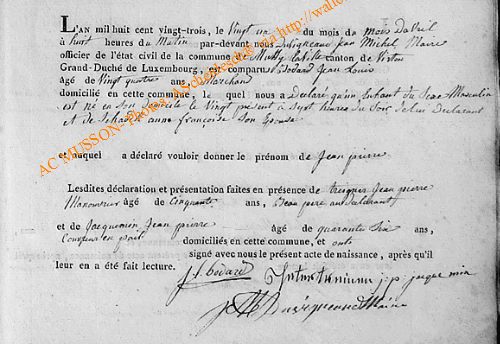 L'AN mil huit cent vingt-trois, le Vingt un du mois de mois Davril
à huit heures du Matin par-devant nous Michel Maire
officier de l'état civil de la commune de Mussy la ville canton de Virton
Grand-Duché de Luxembourg, est comparu Jean Louis
âgé de Vingt quatre ans, Marchand
domicilié en cette commune, le quel nous a Déclaré qu'un Enfant du Sexe Masculin
est né en son domicile le Vingt présent à Sept heures du Soir de lui Déclarant
et de anne françoise Son Epouse
et auquel a déclaré vouloir donner le prénom de Jean pierre
Lesdites déclaration et présentation faites en présence de Jean pierre
Manoeuvre âgé de Cinquante ans, Beau pere au Déclarant
et de Jacquemin Jean pierre âgé de quarante Six ans,
domiciliés en cette commune, et ont
signé avec nous le présent acte de naissance, après qu'il
leur en a été fait lecture.
j. p. jacquemin
Maire
AC MUSSON- Photos